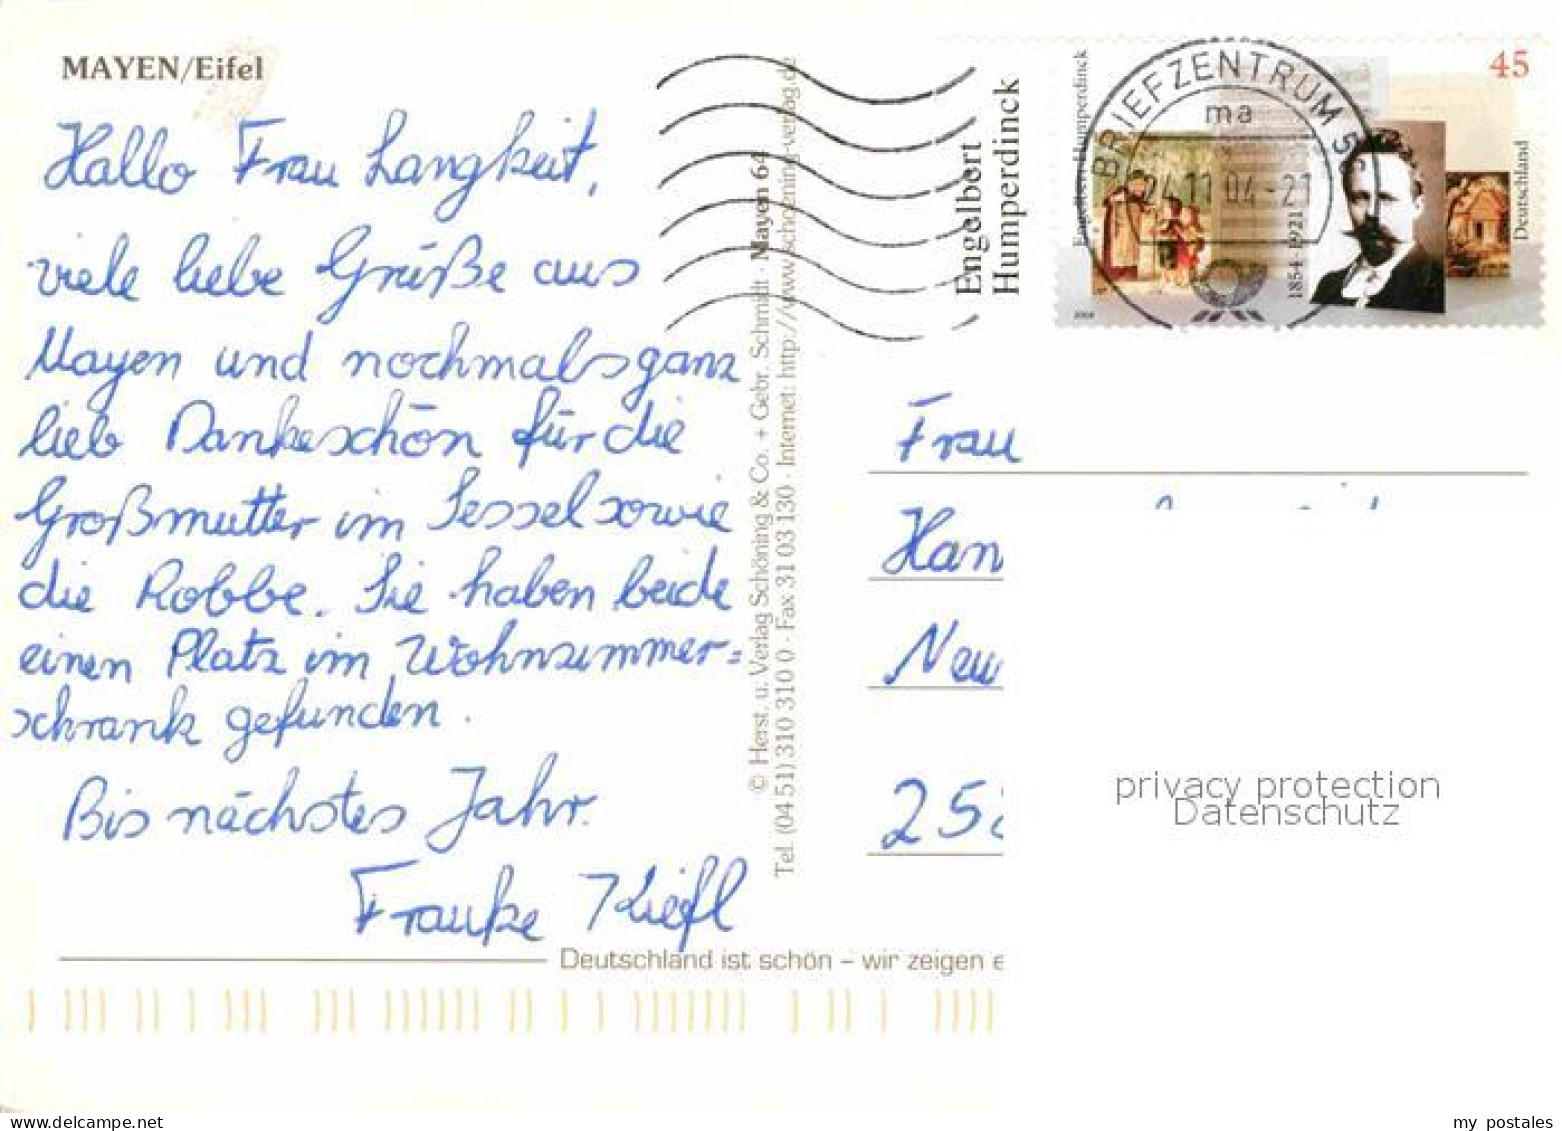 MAYEN/Eifel
Hallo Frau Langkeit,
viele liebe Grüße aus
Mayen und nochmals ganz
lieb Dankeschön für die
Großmutter im Sessel sowie
die Robbe. Sie haben beide
einen Platz im Wohnzimmer=
schrank gefunden.
Bis nächstes Jahr.
Frauke Kiefl
© Herst. u. Verlag Schöning & Co. + Gebr. Schmidt · Mayen 64
Tel. (04 51) 310 310 0 · Fax 31 03 130 · Internet: http://www.schoening-verlag.de
Engelbert
Humperdinck
Engelbert Humperdinck
1854-1921
45
Deutschland
2004
BRIEFZENTRUM 56
ma
24.11.04-21
Frau
Han
Neu
25
privacy protection
Datenschutz
Deutschland ist schön – wir zeigen e
my postales